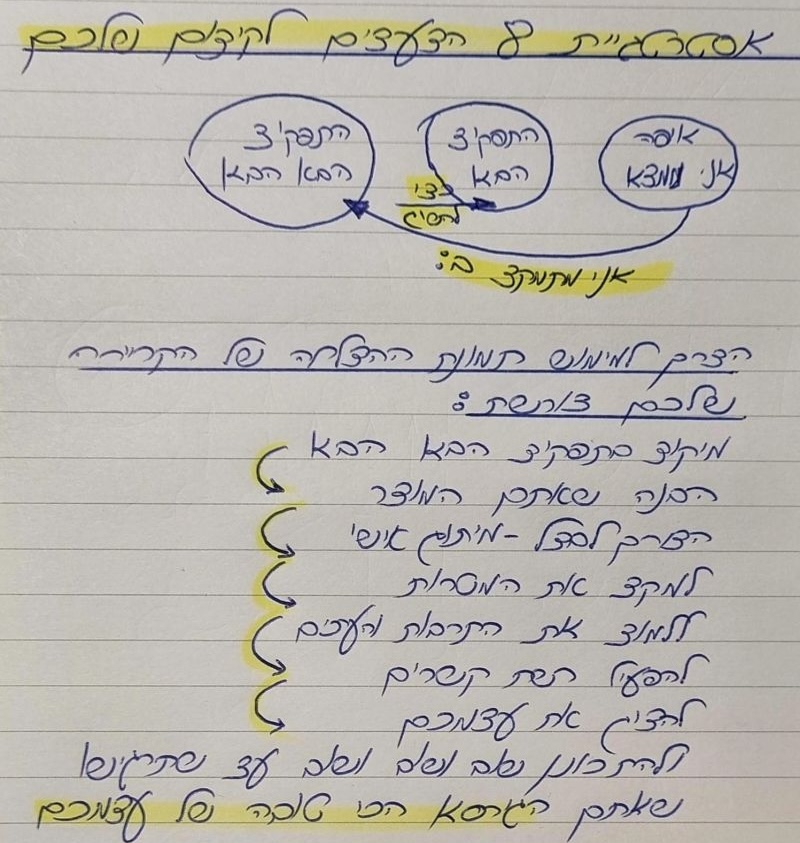 אסטרטגיית 8 הצעדים לקידום שלכם
איפה
אני נמצא
התפקיד
הבא
התפקיד
הבא הבא
כדי
להשיג
אני מתמקד ב:
הדרך למימוש תמונת ההצלחה של הקריירה
שלכם דורשת:
מיקוד בתפקיד הבא הבא
הבנה שאתם המוצר
הצורך לבדל - מיתוג אישי
למקד את המטרות
ללמוד את התרבות והערכים
להפעיל רשת קשרים
להציג את עצמכם
ולהתכוונן שוב ושוב ושוב עד שתרגישו
שאתם הגרסא הכי טובה של עצמכם